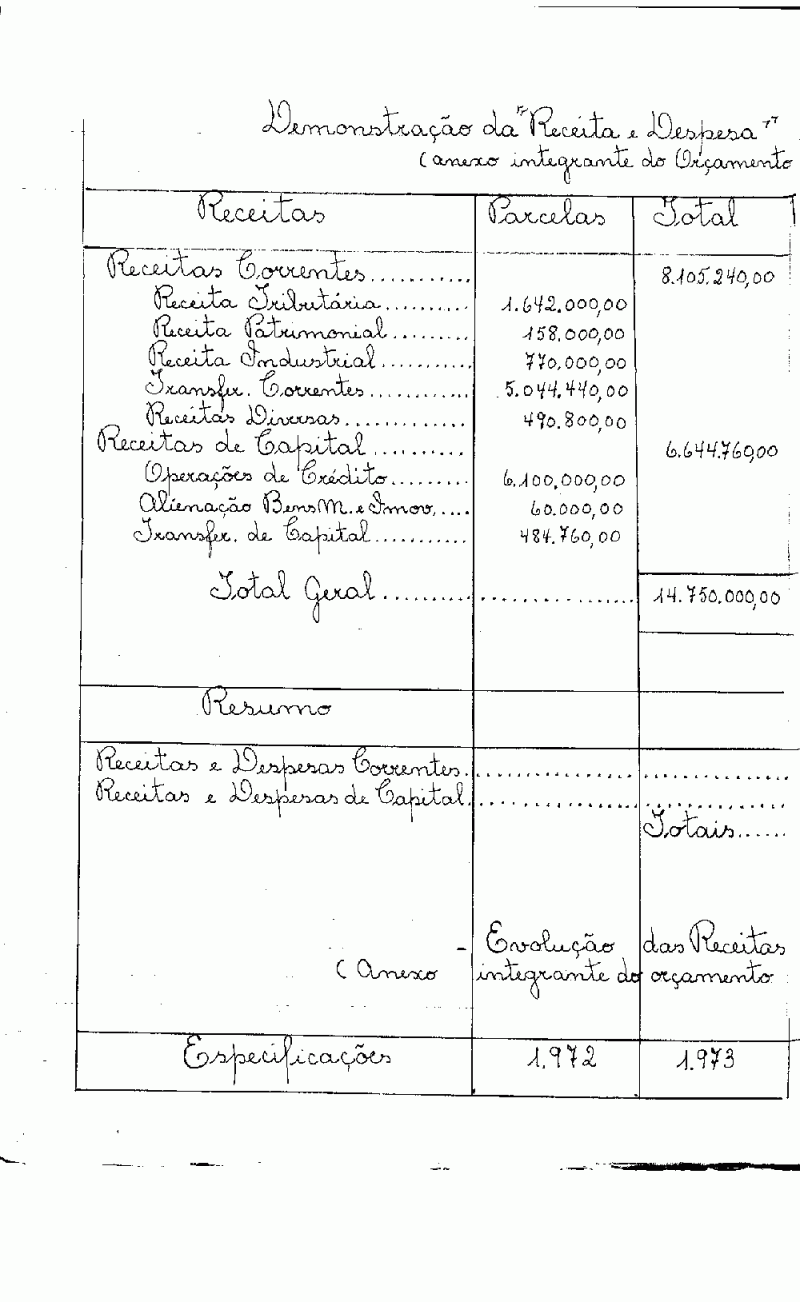 Demonstração da "Receita e Despesa"
(anexo integrante do Orçamento
Receitas Parcelas Total
Receitas Correntes............ 8.105.240,00
Receita Tributária.......... 1.642.000,00
Receita Patrimonial......... 158.000,00
Receita Industrial........... 770.000,00
Transfer. Correntes............ 5.044.440,00
Receitas Diversas............. 490.800,00
Receitas de Capital.......... 6.644.760,00
Operações de Crédito......... 6.100.000,00
Alienação Bens M. e Imov..... 60.000,00
Transfer. de Capital........... 484.760,00
Total Geral.......................... 14.750.000,00
Resumo
Receitas e Despesas Correntes...............................
Receitas e Despesas de Capital...............................
Totais......
- Evolução das Receitas
(Anexo integrante do orçamento
Especificações 1.972 1.973